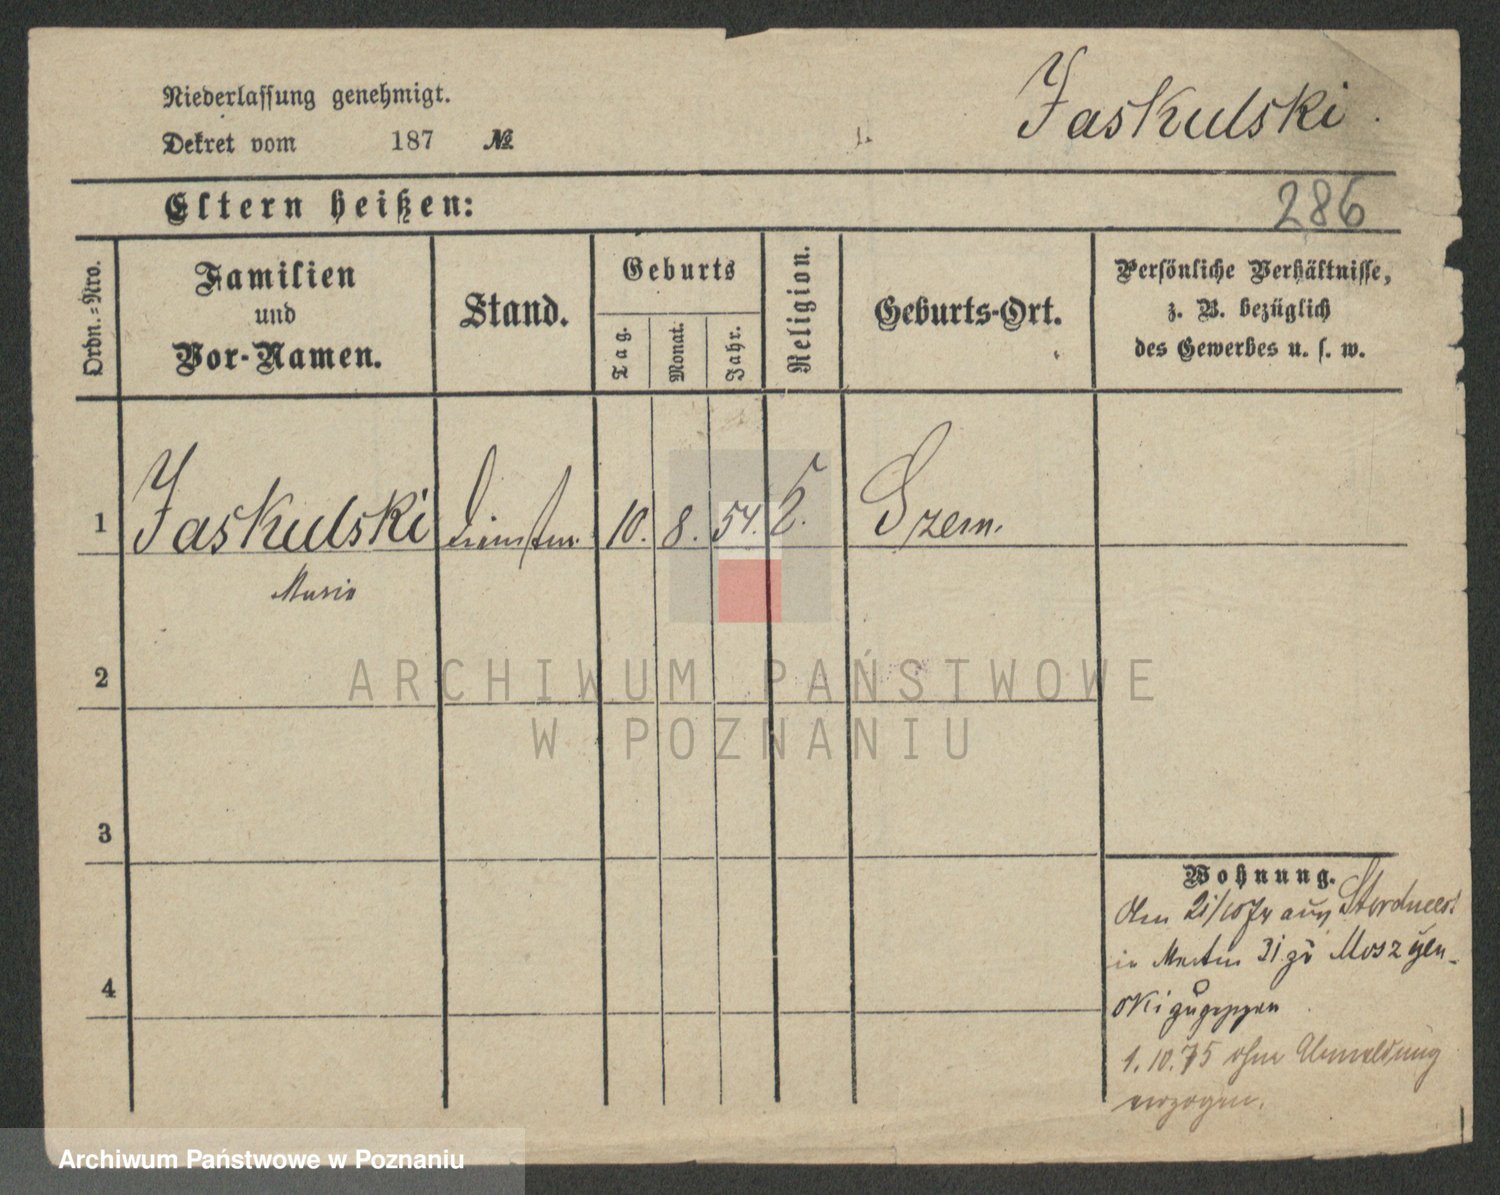 Niederlassung genehmigt.
Dekret vom 187 №
Jaskulski.
Eltern heißen:
286
Ordn.=Nro.
Familien
und
Vor-Namen.
Stand.
Geburts
Tag.
Monat.
Jahr.
Religion.
Geburts-Ort.
Persönliche Verhältnisse,
z. B. bezüglich
des Gewerbes u. s. w.
1 Jaskulski 10. 8. 54. Szem.
2
3
4
ARCHIWUM PAŃSTWOWE
W POZNANIU
Wohnung.
Am 21/10 74 aus
in 31 zu Moszyen-
ski
1.10.75 ohne Abmeldung
verzogen.
Archiwum Państwowe w Poznaniu